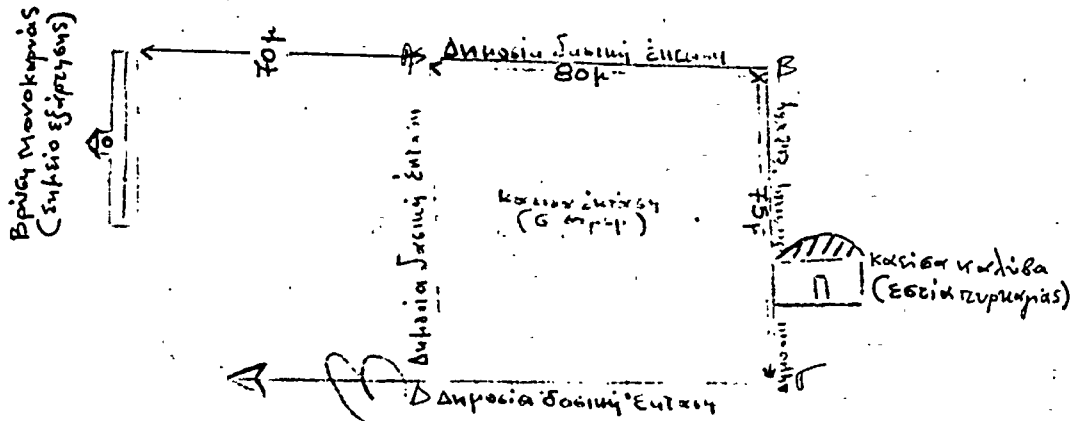 Βρύση Μονοκαρυάς
(σημείο εξάρτησης)
70μ
Α
Δημοσία δασική έκταση
80μ
Β
Δημοσία δασική έκταση
καείσα έκταση
(6 στρέμ)
75μ
δασική έκταση
καείσα καλύβα
(εστία πυρκαγιάς)
Π
Δημοσία
Γ
Δ Δημοσία δασική Έκταση